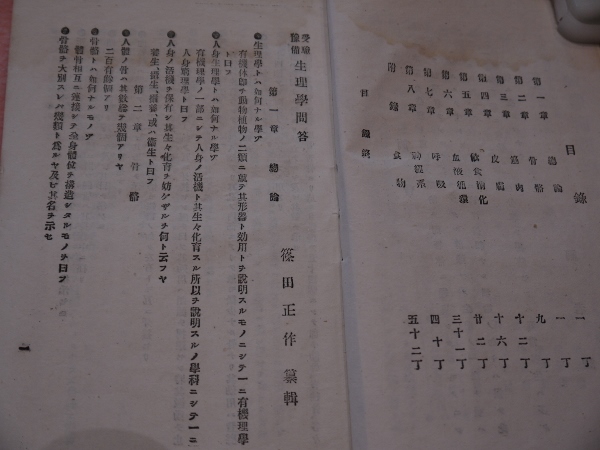 目錄
第一章 總論 一丁
第二章 骨骼 一丁
第三章 筋肉 九丁
第四章 皮膚 十二丁
第五章 飮食消化 十六丁
第六章 血液循環 廿二丁
第七章 呼吸 三十一丁
第八章 神經系 四十丁
附錄 食物 五十二丁
目錄終
受驗豫備 生理學問答
篠田正作 纂輯
第一章 總論
●生理學トハ如何ナル學ゾ
有機休卽チ動物植物ノ二類ニ就テ其形器ト効用トヲ說明スルモノニシテ一ニ有機理學
ト曰フ
●人身生理學トハ如何ナル學ゾ
有機理學ノ一部ニシテ人身ノ活機ト其生々化育スル所以ヲ說明スルノ學科ニシテ一ニ
人身窮理學ト曰フ
●人身ノ活機ヲ保存シ其生々化育ヲ妨ゲザルヲ何ト云フヤ
養生、攝生、攝養、或ハ衞生ト曰フ
第二章 骨骼
●人體ノ骨ハ其數總テ幾個アリヤ
二百有餘個アリ
●骨骼トハ如何ナルモノゾ
體骨相互ニ連接シテ全身體位ヲ構造シタルモノヲ曰フ
●骨骼ヲ大別スレバ幾類ト爲ルヤ及ビ其名ヲ示セ